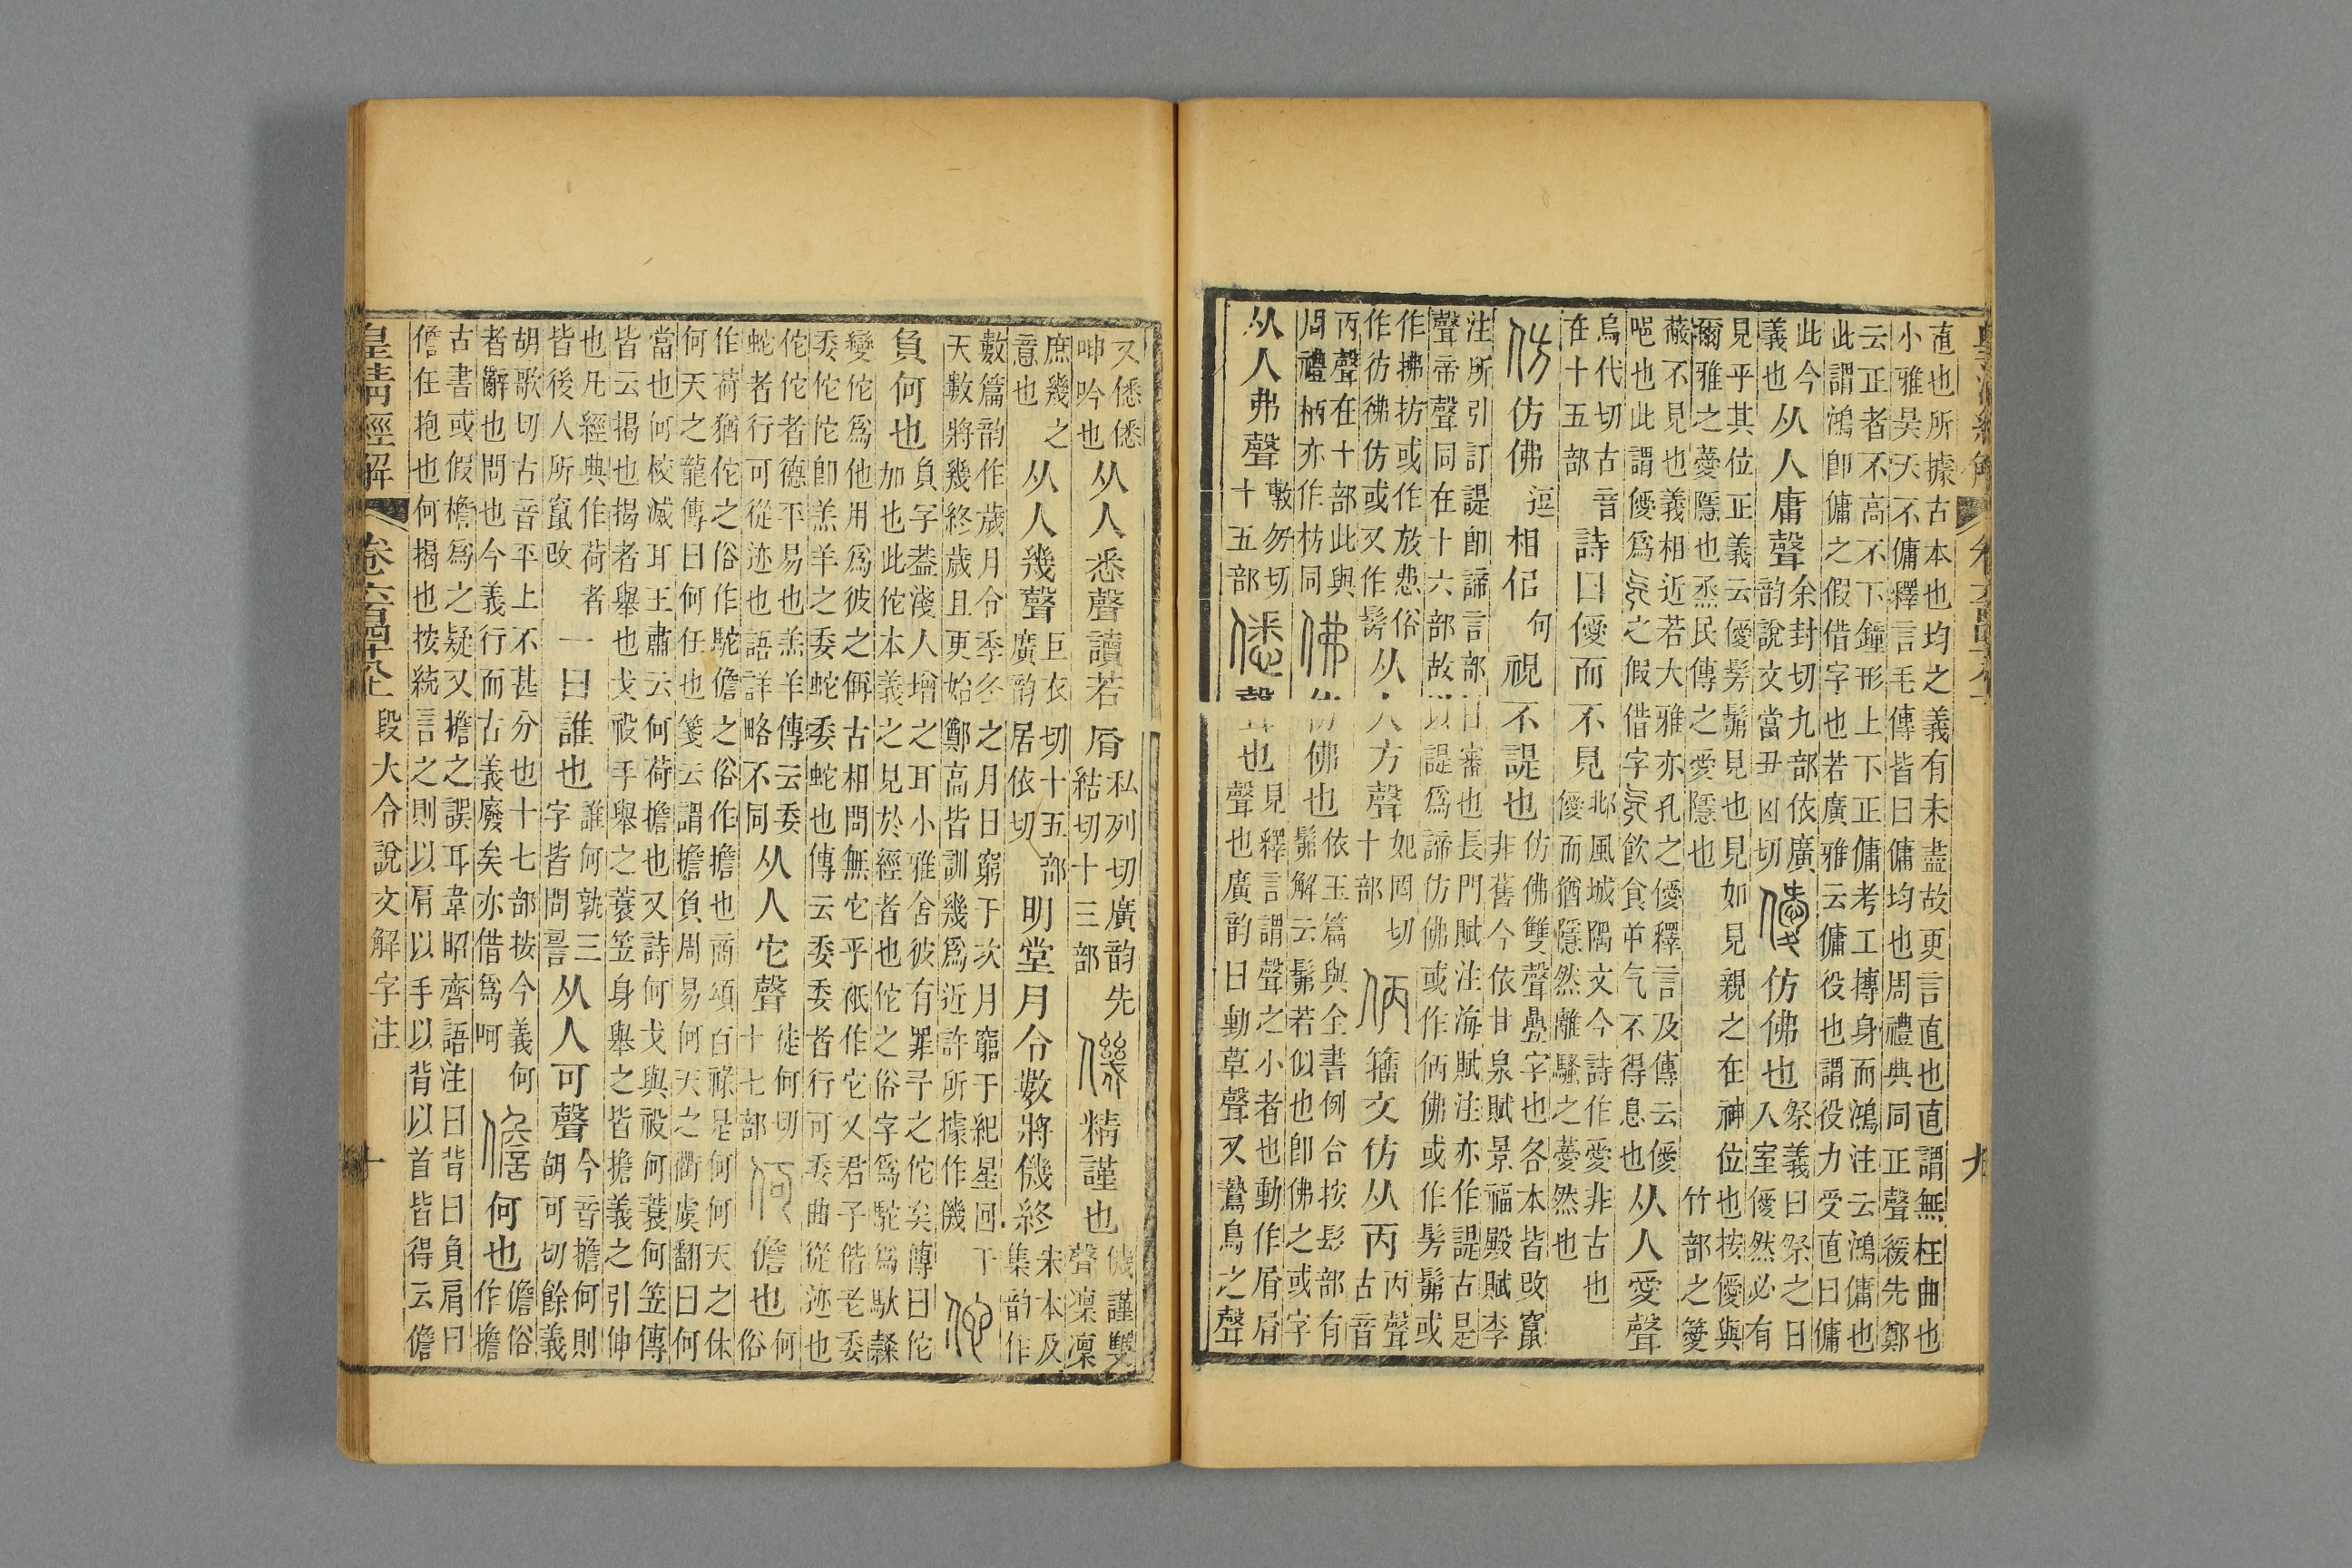 直也所據古本也均之義有未盡故更言直也直謂無枉曲也
小雅昊天不傭釋言毛傳皆曰傭均也周禮典同正聲緩先鄭
云正者不高不下鐘形上下正傭考工摶身而鴻注云鴻傭也
此謂鴻卽傭之假借字也若廣雅云傭役也謂役力受直曰傭
此今義也从人庸聲余封切九部依廣韵說文當丑凶切僾仿佛也祭義曰祭之日入室僾然必有
見乎其位正義云僾髣髴見也見如見親之在神位也按僾與
爾雅之薆隱也烝民傳之愛隱也竹部之䉵
蔽不見也義相近若大雅亦孔之僾釋言及傳云僾
唈也此謂僾爲旡之假借字旡飲食屰气不得息也从人愛聲
烏代切古音在十五部詩曰僾而不見邶風城隅文今詩作愛非古也僾而猶隱然離騷之薆然也
仿仿佛逗相佀句視不諟也仿佛雙聲疊字也各本皆改竄非舊今依甘泉賦景福殿賦李
注所引訂諟卽諦言部曰審也長門賦注海賦注亦作諟古是
聲帝聲同在十六部故以諟爲諦仿佛或作俩佛或作髣髴或
作拂㧍或作放㤱俗作彷彿仿或又作髣从人方聲妃罔切十部俩籒文仿从丙丙聲古音
丙聲在十部此與周禮柄亦作枋同佛仿佛也依玉篇與全書例合按髟部有髴解云髴若似也卽佛之或字
从人弗聲敷勿切十五部僁聲也見釋言謂聲之小者也動作屑屑聲也廣韵曰動草聲又鷙鳥之聲
九
又僁僁呻吟也从人悉聲讀若屑私列切廣韵先結切十三部僟精謹也僟謹雙聲凜凜
庶幾之意也从人幾聲巨衣切十五部廣韵居依切明堂月令數將僟終宋本及集韵作
數篇韵作歲月令季冬之月日窮于次月窮于紀星回于
天數將幾終歲且更始鄭高皆訓幾爲近許所據作僟佗
負何也負字葢淺人增之耳小雅舍彼有罪予之佗矣傳曰佗加也此佗本義之見於經者也佗之俗字爲駝爲馱隸
變佗爲他用爲彼之偁古相問無它乎衹作它又君子偕老委
委佗佗卽羔羊之委蛇委蛇也傳云委委者行可委曲從迹也
佗佗者德平易也羔羊傳云委蛇者行可從迹也語詳略不同从人它聲徒何切十七部何儋也何俗
作荷猶佗之俗作駝儋之俗作擔也商頌百祿是何何天之休
何天之龍傳曰何任也箋云謂擔負周易何天之衢虞翻曰何
當也何校滅耳王肅云何荷擔也又詩何戈與祋何蓑何笠傳
皆云揭也揭者舉也戈祋手舉之蓑笠身舉之皆擔義之引伸
也凡經典作荷者皆後人所竄改一曰誰也誰何孰三字皆問䛐从人可聲今音擔何則胡可切餘義
胡歌切古音平上不甚分也十七部按今義何者辭也問也今義行而古義廢矣亦借爲呵儋何也儋俗作擔
古書或假檐爲之疑又擔之誤耳韋昭齊語注曰背曰負肩曰
儋任抱也何揭也按統言之則以肩以手以背以首皆得云儋
皇清經解 卷六百四十八上 段大令說文解字注 十